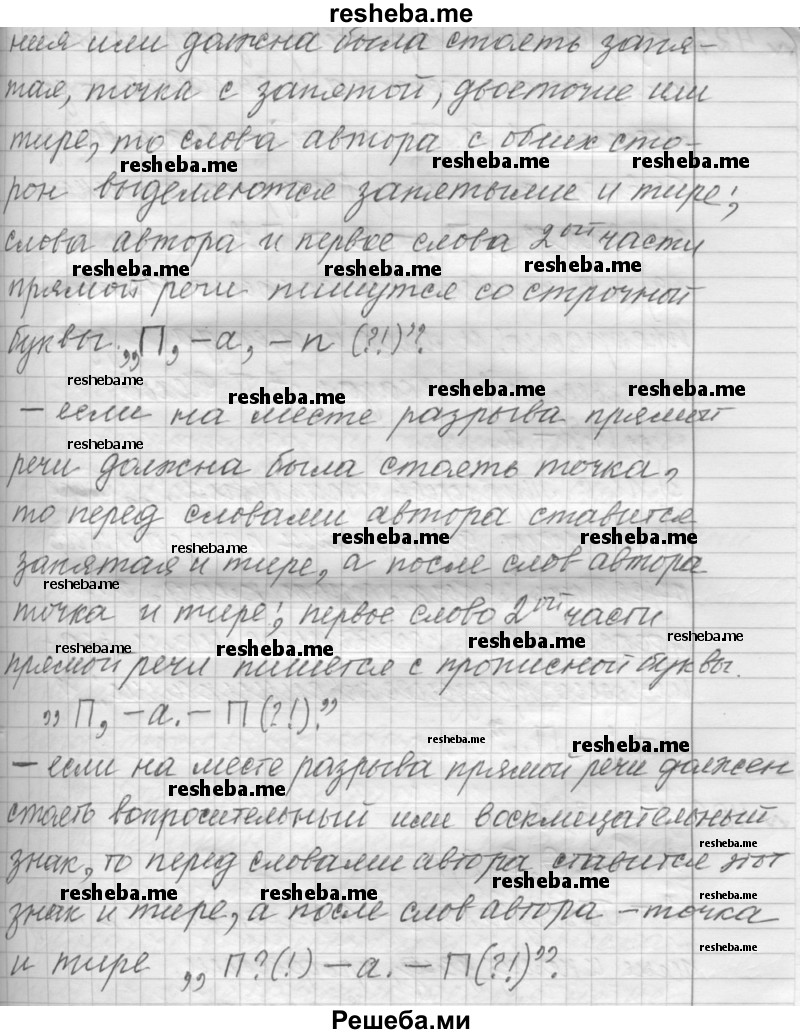 resheba.me
ния или должна была стоять запя-
тая, точка с запятой, двоеточие или
тире, то слова автора с обеих сто-
resheba.me resheba.me resheba.me
рон выделяются запятыми и тире;
слова автора и первое слова 2ой части
resheba.me resheba.me resheba.me
прямой речи пишутся со строчной
буквы. „П, – а, – п (?!)”.
resheba.me
resheba.me resheba.me resheba.me
– если на месте разрыва прямой
resheba.me
речи должна была стоять точка,
то перед словами автора ставится
resheba.me resheba.me resheba.me
запятая и тире, а после слов автора
resheba.me
точка и тире; первое слово 2ой части
resheba.me resheba.me resheba.me resheba.me
прямой речи пишется с прописной буквы.
„П, – а. – П (?!).”
resheba.me resheba.me
– если на месте разрыва прямой речи должен
resheba.me
стоять вопросительный или восклицательный
resheba.me
знак, то перед словами автора ставится этот
resheba.me resheba.me resheba.me resheba.me
знак и тире, а после слов автора – точка
resheba.me
и тире „П?(!) – а. – П(?!)”.
Решеба.ми